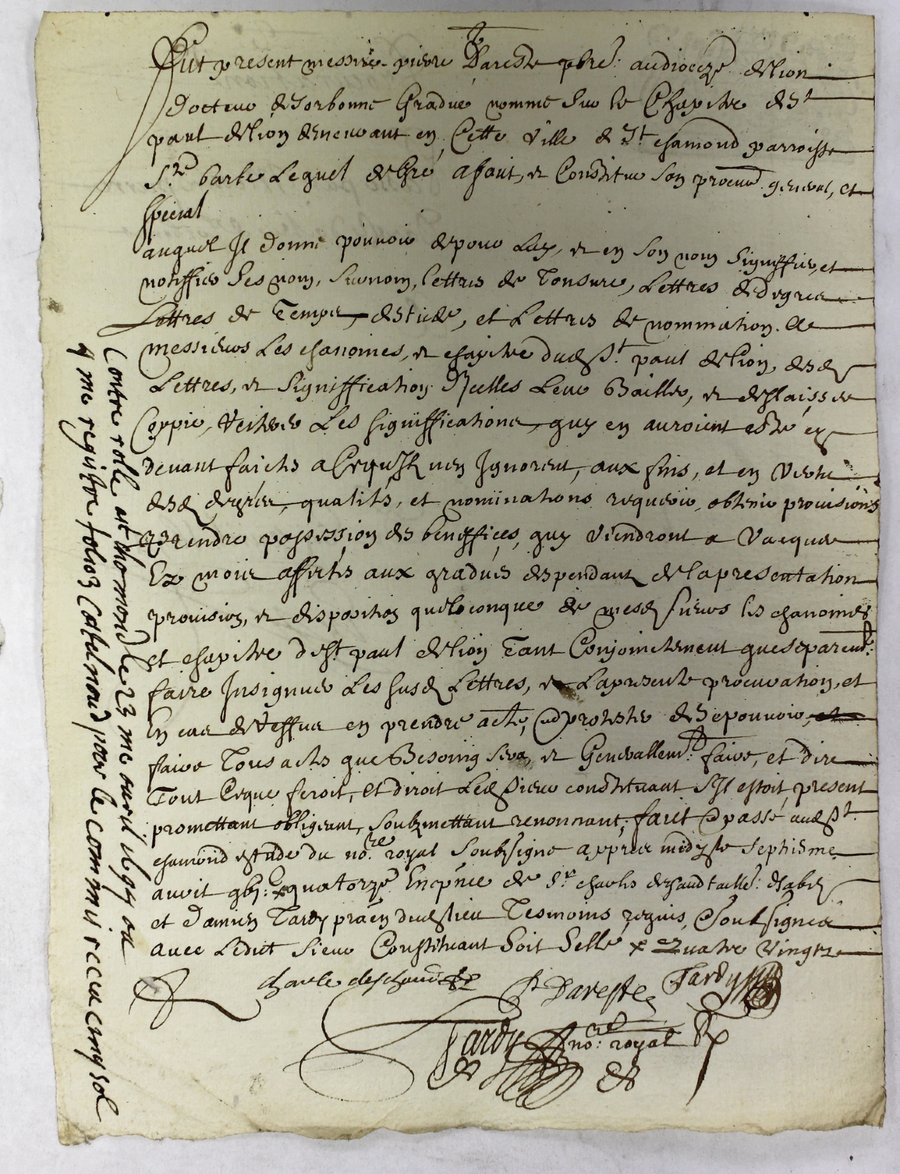 Fut present messire pierre Dareste pbre: audioceze de lion
docteur de sorbonne Gradué nommé sur le Chapitre de st
paul de lion demeurant en Cette ville de st chamond parroisse
ste barbe Lequel de Gré a faict, et Constitue son procur general, et
special
auquel Il donne pouvoir de pour Luy, et en son nom signiffier, et
notiffier ses nom, surnom, lettres de Tonsure, Lettres de degrez
Lettres de Temps d'estude, et Lettres de nomination. A
messieurs Les chanoines, et chapitre dud st paul de lion, desd
Lettres, et signiffication Icelles Leur Bailler, et delaisser
Coppie, reiterer Les signiffications, quy en auroient esté cy
devant faicts a Cequ'Ilz n'en Ignorent, aux fins, et en vertu
desd degrez, qualités, et nominations requerir, obtenir provisions
prendre possession des beneffices, quy viendront a vacquer
Ez mois affectés aux gradués despendant de la presentation
provision, et disposition quelconque de mesd sieurs les chanoines
et chapitre de st paul de lion Tant Conjoinctement que separemt:
faire Insignuer Les susd Lettres, et La presente procuration, et
En cas de reffus en prendre acte, et protester de se pourvoir,
faire Tous acts que Besoing sera, et Generallemt faire, et dire
Tout Ceque feroit, et diroit Led sieur constituant s'Il estoit present
promettant obligeant, soubzmettant renoncant, faict et passé aud st
chamond estude du nore royal soubsigné apprez midy le septiesme
avril gbj: x quatorze En pnce de sr charles deschaud taille: d'habis
et Damien Tardy praen dud lieu Tesmoins requis, et soubsignéz
avec Ledict sieur Constituant Soit Sellé x Quatre vingtz
charle deschaud P Dareste Tardy
Tardy nore: royal
Contre rollé a st chamond le 23 me avril 1694 au
4 me registre folio 3 Catalnaud pour le commis receu cinq sol